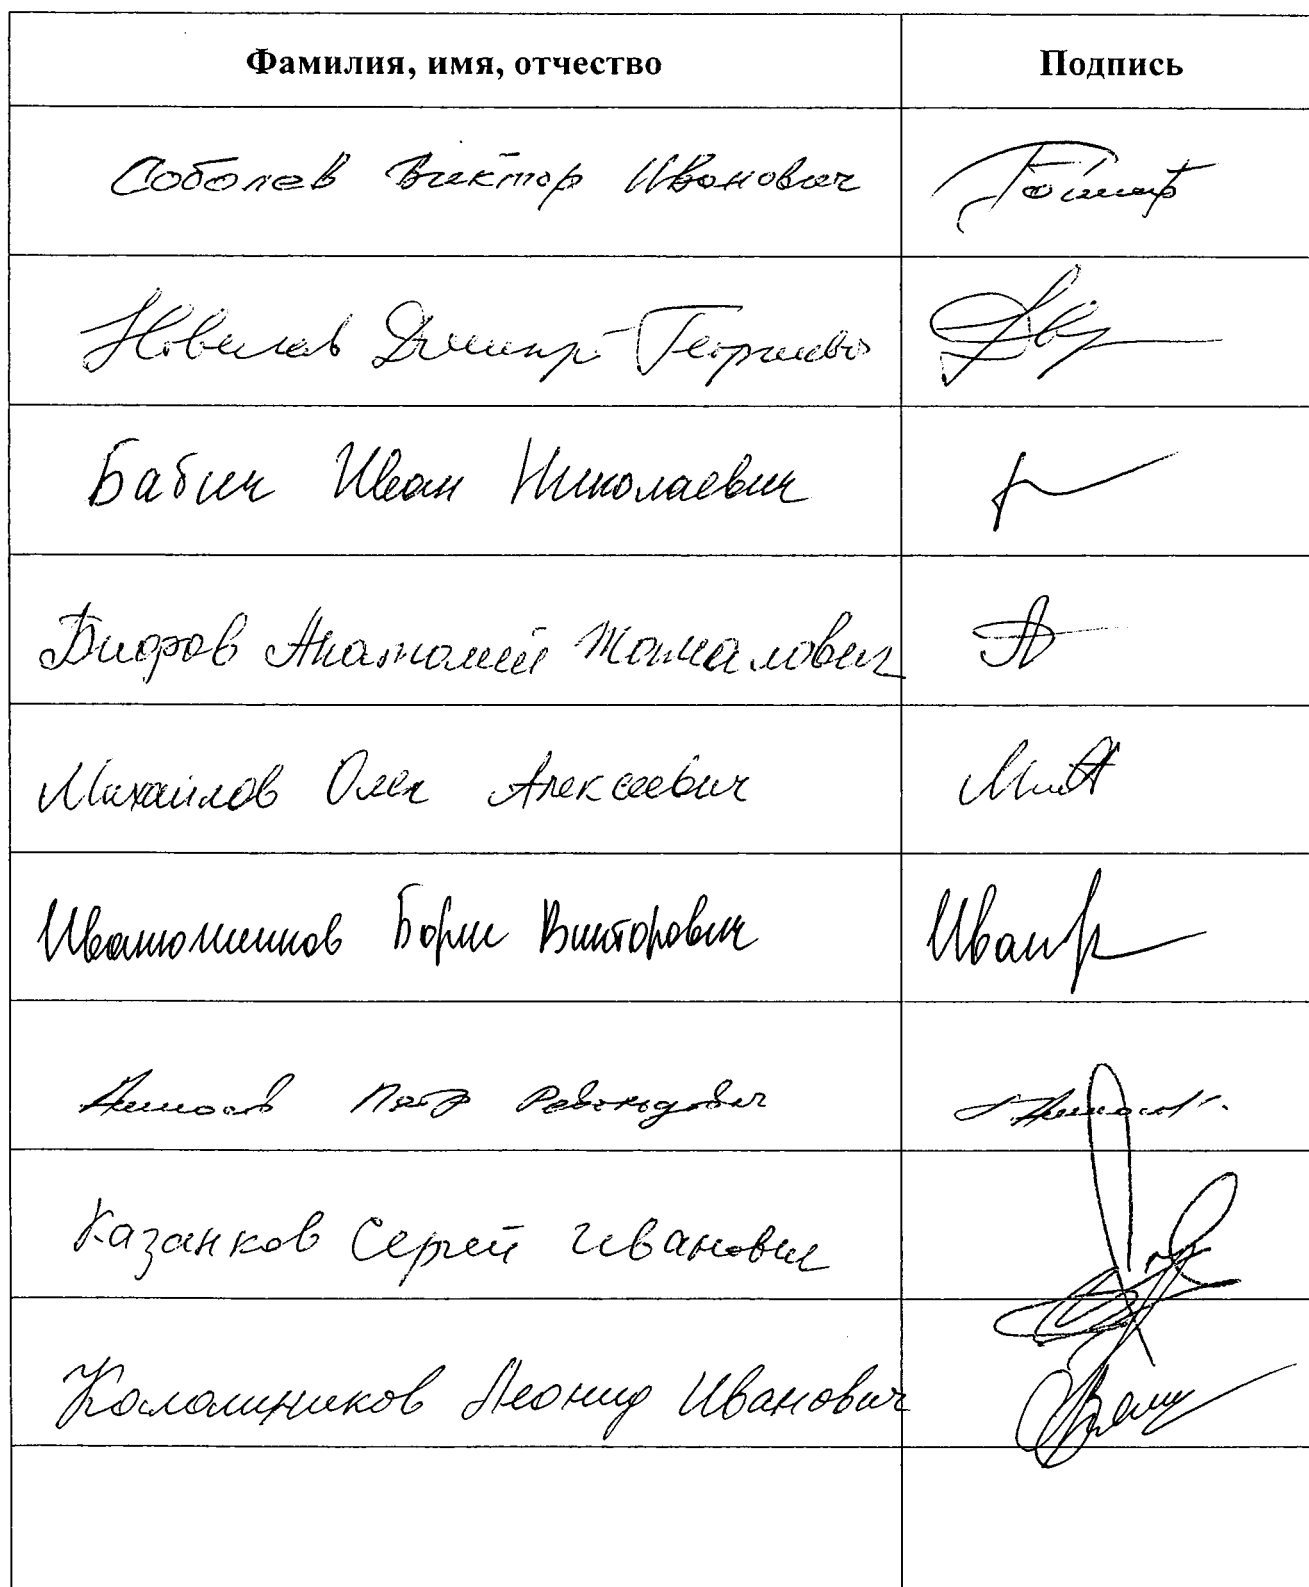 Фамилия, имя, отчество Подпись
Соболев Виктор Иванович
Новиков Дмитр Георгиевич
Бабич Иван Николаевич
Бифов Анатолий Жамалович
Михайлов Олег Алексеевич
Иванюженков Борис Викторович Иван
Аммосов Пётр Револьдович
Казанков Сергей Иванович
Калашников Леонид Иванович